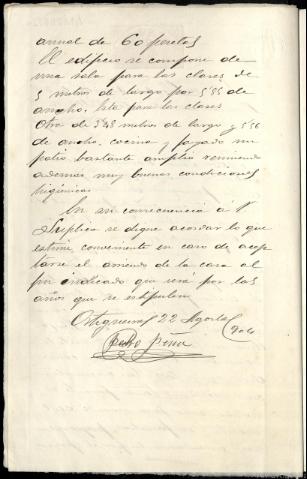 anual de 60 pesetas
El edificio se compone de
una sala para las clases de
5 metros de largo por 5'55 de
ancho. Esta para las clases
Otra de 3'45 metros de largo y 5'56
de ancho, cocina y pagado un
patio bastante amplio reuniendo
ademas muy buenas condiciones
higienicas
En su consecuencia á V.
Suplica se digne acordar lo que
estime conveniente en caso de acep
tarse el arriendo de la casa al
fin indicado que será por los
años que se estipulen
22 Agosto
904
Pedro Peña